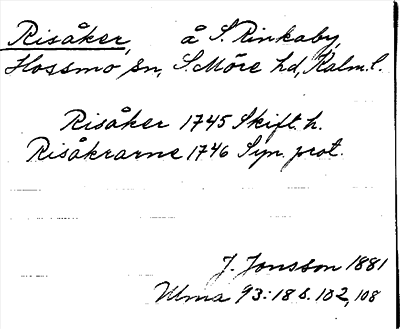 Risåker, å S. Rinkaby,
Hossmo sn, S. Möre hd, Kalm. l.
Risåker 1745 Skift. h.
Risåkrarne 1746 Syn. prot.
J. Jonsson 1881
Ulma 93:18 s. 102, 108